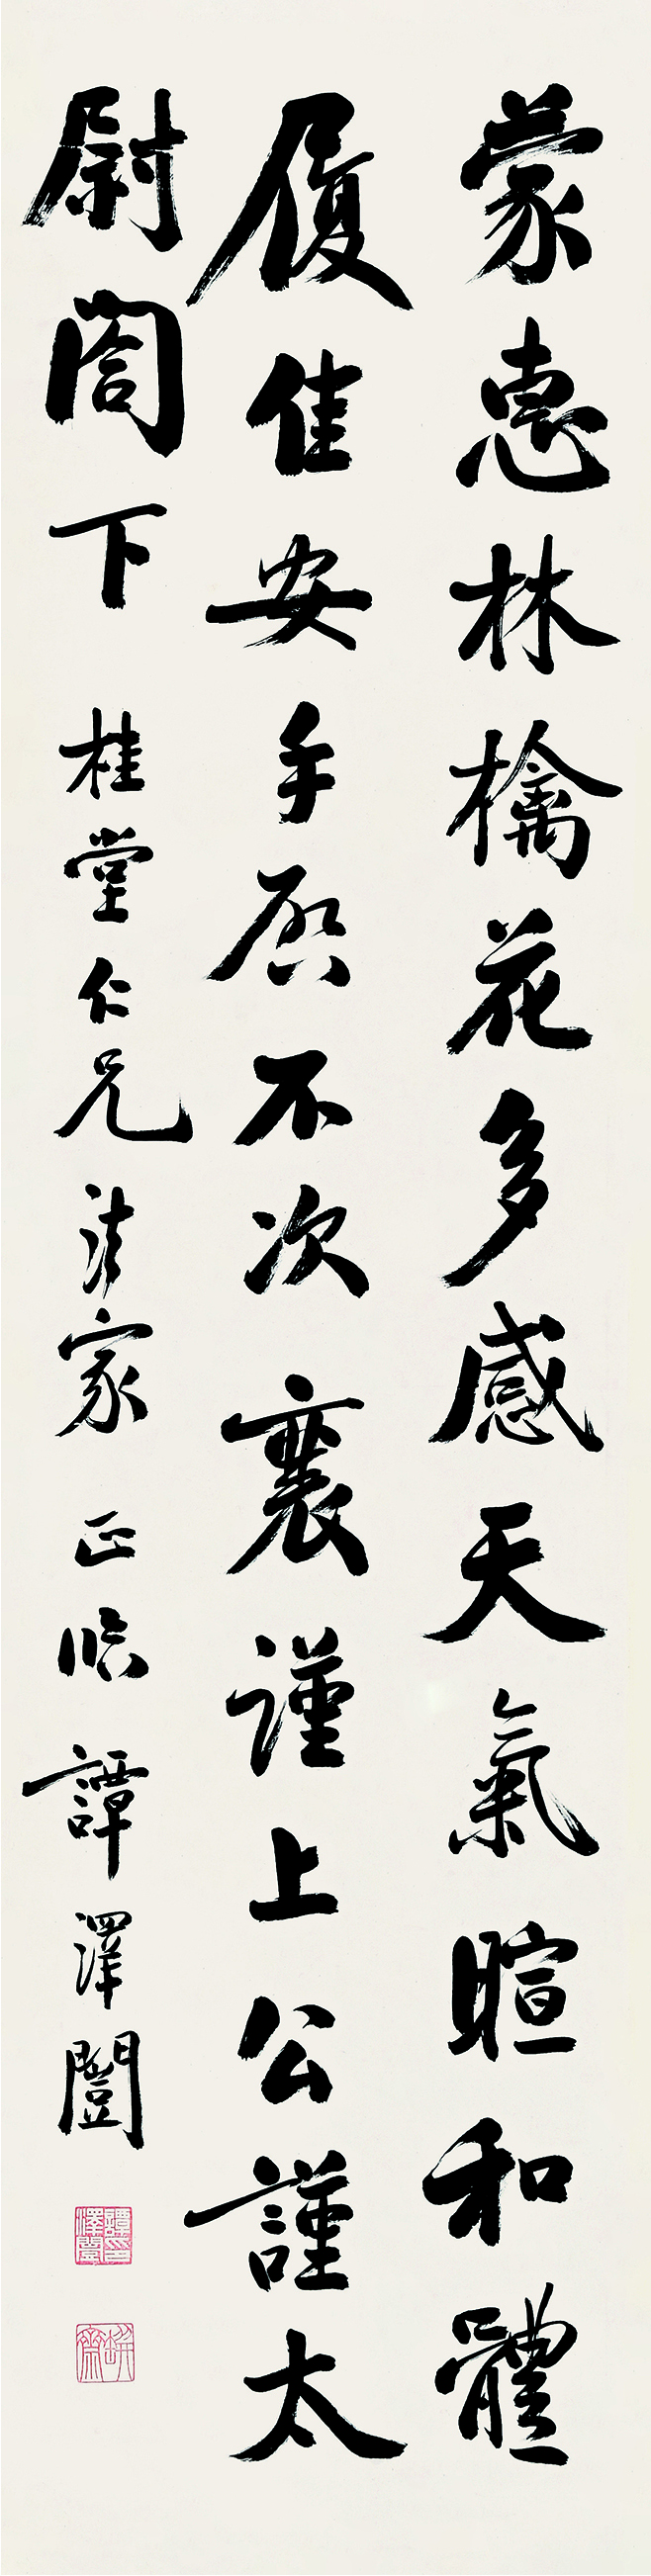 蒙惠林檎花多感天氣暄和體
履佳安手啓不次襄謹上公謹太
尉閤下 桂堂仁兄法家正临 譚澤闓
譚澤闓印
瓶齋